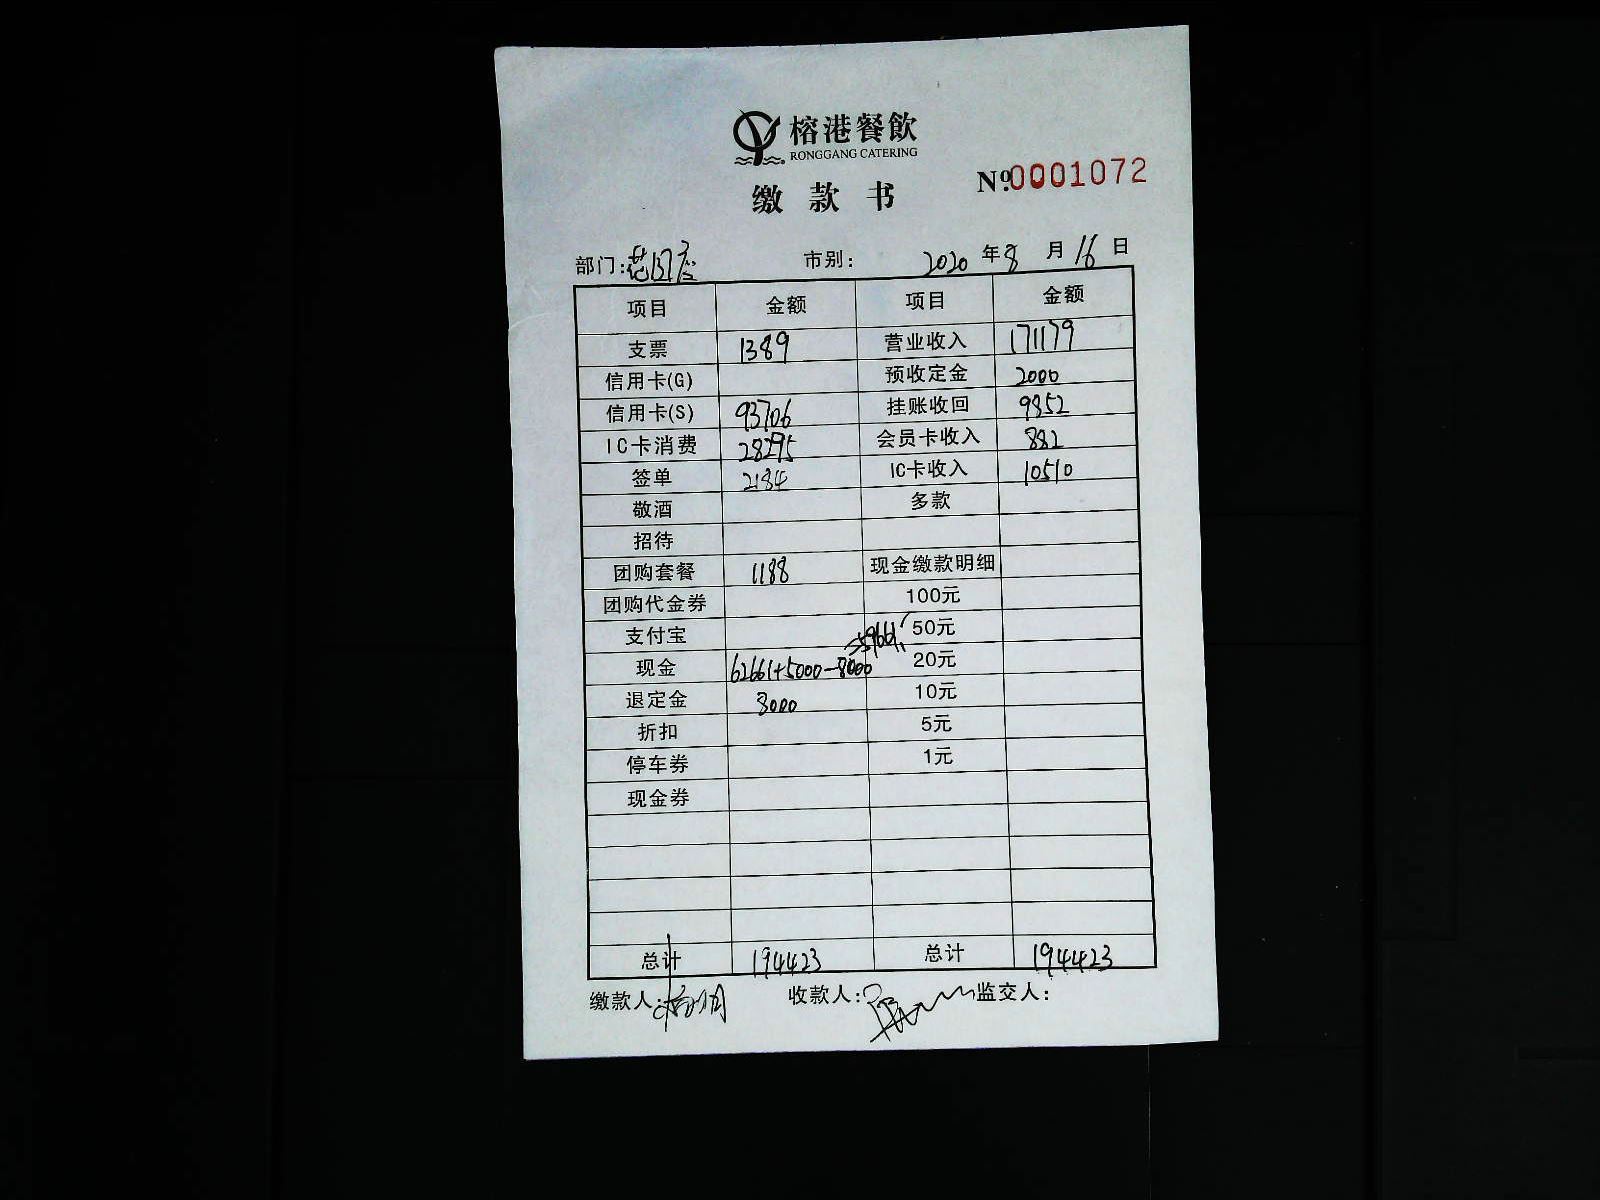 榕港餐飲
RONGGANG CATERING
缴款书
№0001072
部门:花园店 市别: 2020年8月16日
项目 金额 项目 金额
支票 1389 营业收入 171179
信用卡(G) 预收定金 2000
信用卡(S) 93706 挂账收回 9852
IC卡消费 28295 会员卡收入 882
签单 2184 IC卡收入 10510
敬酒 多款
招待
团购套餐 1188 现金缴款明细
团购代金券 100元
支付宝 50元
现金 62661+5000-8000=59661 20元
退定金 8000 10元
折扣 5元
停车券 1元
现金券
总计 194423 总计 194423
缴款人: 收款人: 监交人: